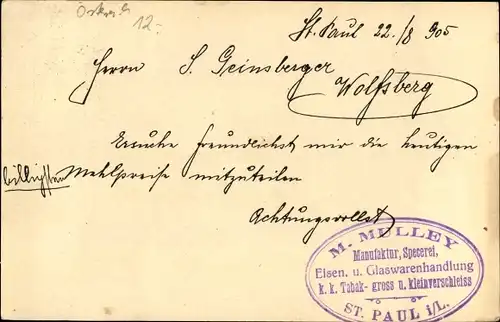 12.-
St. Paul 22./8 905
Herrn S. Geinsberger
Wolfsberg
Ersuche freundlichst mir die heutigen
billigsten Mehlpreise mitzuteilen
Achtungsvollst
M. MULLEY
Manufaktur, Specerei,
Eisen. u. Glaswarenhandlung
k. k. Tabak- gross u. kleinverschleiss
ST. PAUL i/L.